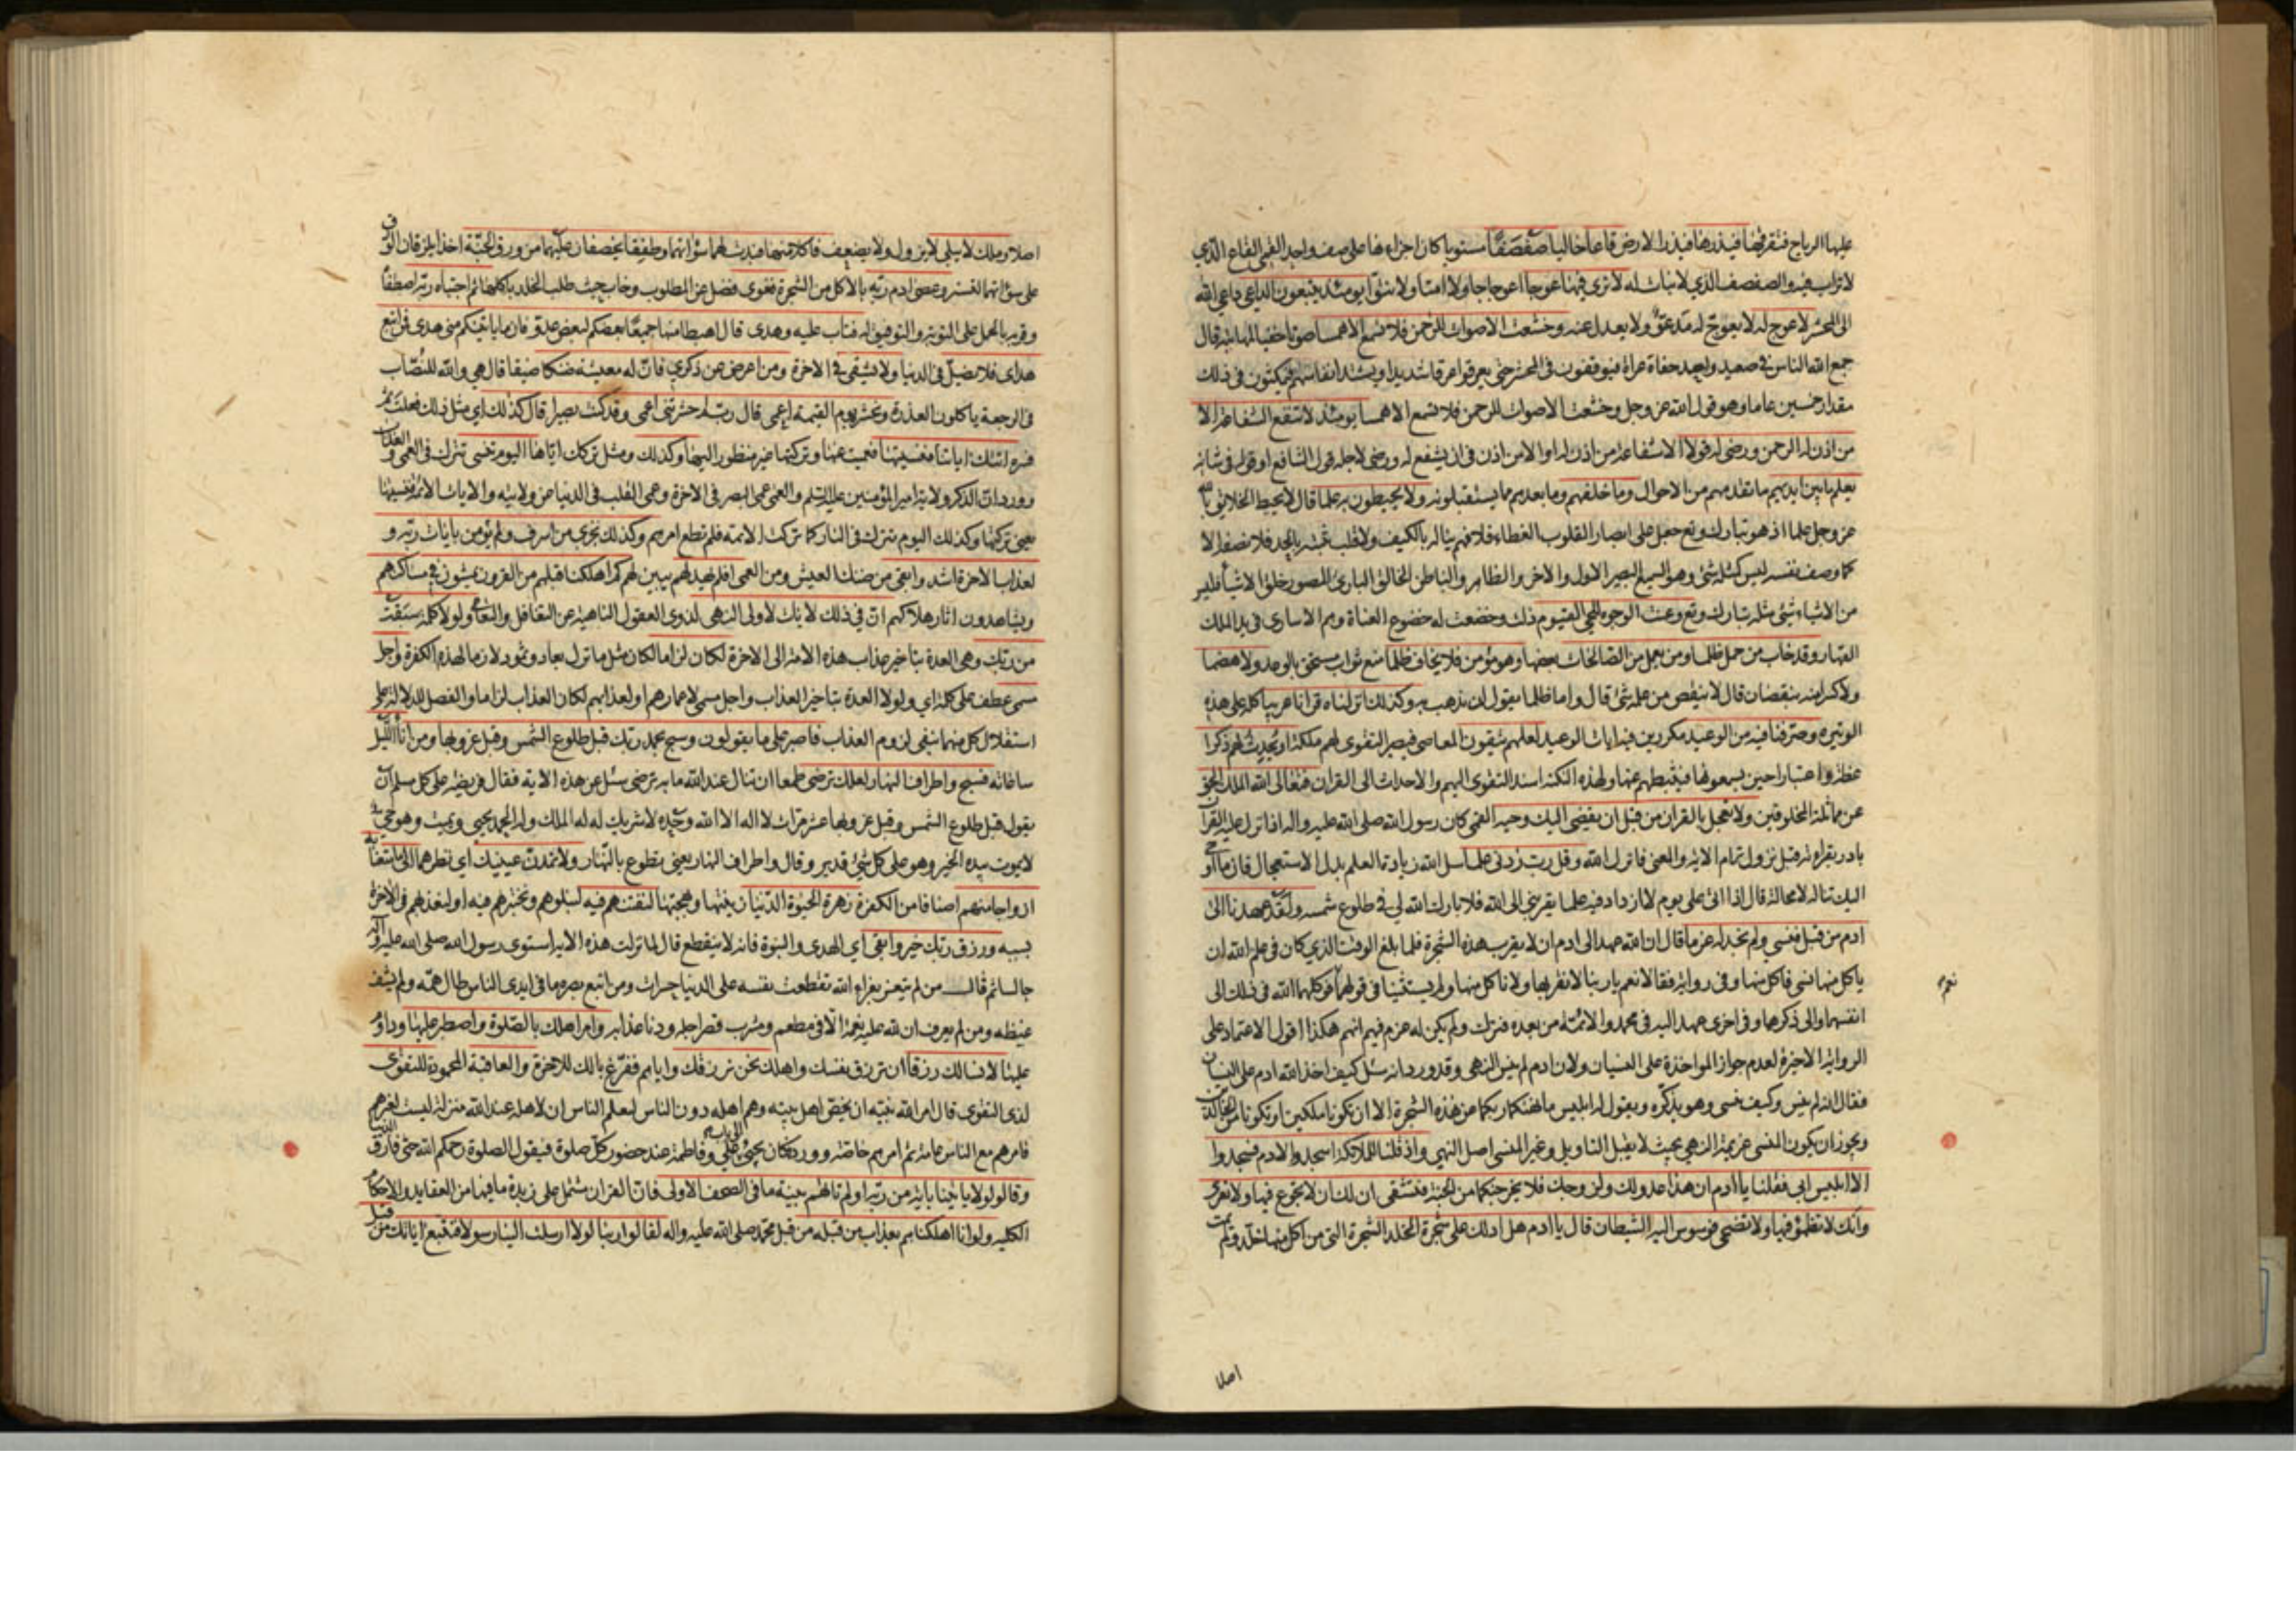 عليها الرياح فتفرقها فيذرها فيذر الارض قاعا خاليا صفصفا مستويا كان اجزاءها على صف واحد القمي القاع الذي
لا تراب فيه والصفصف الذي لا نبات له لا ترى فيها عوجا اعوجاجا ولا امتا ولا نتوا يومئذ يتبعون الداعي داعي الله
الى المحشر لا عوج له لا يعوج له مدعو ولا يعدل عنه وخشعت الاصوات للرحمن فلا تسمع الا همسا صوتا خفيا قال
جمع الله الناس في صعيد واحد حفاة عراة فيوقفون في المحشر حتى يعرقوا عرقا شديدا وتشتد انفاسهم فيمكثون في ذلك
مقدار خمسين عاما وهو قول الله عز وجل وخشعت الاصوات للرحمن فلا تسمع الا همسا يومئذ لا تنفع الشفاعة الا
من اذن له الرحمن ورضى له قولا الا شفاعة من اذن له او الا من اذن في ان يشفع له ورضى لاجله قول الشافع او قوله في شانه
يعلم ما بين ايديهم ما تقدمهم من الاحوال وما خلفهم وما بعدهم مما يستقبلونه ولا يحيطون به علما قال لا يحيط الخلايق بالله
عز وجل علما اذ هو تبارك وتع جعل على ابصار القلوب الغطاء فلا فهم يناله بالكيف ولا قلب يثبته بالحد فلا نصفه الا
كما وصف نفسه ليس كمثله شئ وهو السميع البصير الاول والاخر والظاهر والباطن الخالق البارئ المصور خلق الاشياء فليس
من الاشياء شئ مثله تبارك وتع وعنت الوجوه للحي القيوم ذلت وخضعت له خضوع العناة وهم الاسارى في يد الملك
القهار وقد خاب من حمل ظلما ومن يعمل من الصالحات بعضها وهو مؤمن فلا يخاف ظلما منع ثواب مستحق بالوعد ولا هضما
ولا كسرا منه بنقصان قال لا ينقص من عمله شئ قال واما ظلما يقول لن يذهب به وكذلك انزلناه قرانا عربيا كله على هذه
الوتيرة وصرفنا فيه من الوعيد مكررين فيه ايات الوعيد لعلهم يتقون المعاصي فيصير التقوى لهم ملكة او يحدث لهم ذكرا
عظة واعتبارا حين يسمعونها فيثبطهم عنها ولهذه النكتة اسند التقوى اليهم والاحداث الى القران فتعالى الله الملك الحق
عن مماثلة المخلوقين ولا تعجل بالقران من قبل ان يقضى اليك وحيه القمي كان رسول الله صلى الله عليه واله اذا نزل عليه القران
بادر بقراءته قبل نزول تمام الاية والمعنى فانزل الله وقل رب زدني علما سل الله زيادة العلم بدل الاستعجال فان ما اوحي
اليك تناله لا محالة قال اذا اتى علي يوم لا ازداد فيه علما يقربني الى الله فلا بارك الله لي في طلوع شمسه ولقد عهدنا الى
ادم من قبل فنسي ولم نجد له عزما قال ان الله عهد الى ادم ان لا يقرب هذه الشجرة فلما بلغ الوقت الذي كان في علم الله ان
ياكل منها نسي فاكل منها وفي رواية فقالا نعم يا ربنا لا نقربها ولا ناكل منها ولم يستثنيا في قولهما نعم فوكلهما الله في ذلك الى
انفسهما والى ذكرهما وفي اخرى عهد اليه في محمد والائمة من بعده فترك ولم يكن له عزم فيهم انهم هكذا اقول الاعتماد على
الرواية الاخيرة لعدم جواز المواخذة على النسيان ولان ادم لم ينس النهي وقد ورد انه سئل كيف اخذ الله ادم على النسيان
فقال انه لم ينس وكيف نسي وهو يذكره ويقول له ابليس ما نهيكما ربكما عن هذه الشجرة الا ان تكونا ملكين او تكونا من الخالدين
ويجوز ان يكون المنسي عزيمة النهي بحيث لا يقبل التاويل وغير المنسي اصل النهي واذ قلنا للملائكة اسجدوا لادم فسجدوا
الا ابليس ابى فقلنا يا ادم ان هذا عدو لك ولزوجك فلا يخرجنكما من الجنة فتشقى ان لك ان لا تجوع فيها ولا تعرى
وانك لا تظمؤ فيها ولا تضحى فوسوس اليه الشيطان قال يا ادم هل ادلك على شجرة الخلد الشجرة التي من اكل منها خلد ولم يمت
نعم
اصلا
اصلا وملك لا يبلى لا يزول ولا يضعف فاكلا منها فبدت لهما سؤاتهما وطفقا يخصفان عليهما من ورق الجنة اخذا يلزقان الورق
على سؤاتهما للتستر وعصى ادم ربه بالاكل من الشجرة فغوى فضل عن المطلوب وخاب حيث طلب الخلد باكلها ثم اجتباه ربه اصطفاه
وقربه بالحمل على التوبة والتوفيق له فتاب عليه وهدى قال اهبطا منها جميعا بعضكم لبعض عدو فاما ياتينكم مني هدى فمن اتبع
هداي فلا يضل في الدنيا ولا يشقى في الاخرة ومن اعرض عن ذكري فان له معيشة ضنكا ضيقا قال هي والله للنصاب
في الرجعة ياكلون العذرة ونحشره يوم القيمة اعمى قال رب لم حشرتني اعمى وقد كنت بصيرا قال كذلك اي مثل ذلك فعلت ثم
فسره اتتك اياتنا فنسيتها فعميت عنها وتركتها غير منظور اليها وكذلك ومثل تركك اياها اليوم تنسى تترك في العمى والعذاب
وورد ان الذكر ولاية امير المؤمنين عليه السلم والعمى عمى البصر في الاخرة وعمى القلب في الدنيا عن ولايته والايات الائمة فنسيتها
يعني تركتها وكذلك اليوم تترك في النار كما تركت الائمة فلم تطع امرهم وكذلك نجزي من اسرف ولم يؤمن بايات ربه و
لعذاب الاخرة اشد وابقى من ضنك العيش ومن العمى افلم يهد لهم يبين لهم كم اهلكنا قبلهم من القرون يمشون في مساكنهم
ويشاهدون اثار هلاكهم ان في ذلك لايات لاولى النهى لذوى العقول الناهية عن التغافل والتعامي ولولا كلمة سبقت
من ربك وهي العدة بتاخير عذاب هذه الامة الى الاخرة لكان لزاما لكان مثل ما نزل بعاد وثمود لازما لهذه الكفرة واجل
مسمى عطف على كلمة اي ولولا العدة بتاخير العذاب واجل مسمى لاعمارهم او لعذابهم لكان العذاب لزاما والفصل للدلالة على
استقلال كل منهما بنفي لزوم العذاب فاصبر على ما يقولون وسبح بحمد ربك قبل طلوع الشمس وقبل غروبها ومن اناء الليل
ساعاته فسبح واطراف النهار لعلك ترضى طمعا ان تنال عند الله ما به ترضى سئل عن هذه الاية فقال فريضة على كل مسلم ان
يقول قبل طلوع الشمس وقبل غروبها عشر مرات لا اله الا الله وحده لا شريك له له الملك وله الحمد يحيي ويميت وهو حي
لا يموت بيده الخير وهو على كل شئ قدير وقال واطراف النهار يعني تطوع بالنهار ولا تمدن عينيك اي نظرهما الى ما متعنا به
ازواجا منهم اصنافا من الكفرة زهرة الحيوة الدنيا زينتها وبهجتها لنفتنهم فيه لنبلوهم ونختبرهم فيه او لنعذبهم في الاخرة
بسببه ورزق ربك خير وابقى اي الهدى والنبوة فانه لا ينقطع قال لما نزلت هذه الاية استوى رسول الله صلى الله عليه واله
جالسا ثم قال من لم يتعز بعزاء الله تقطعت نفسه على الدنيا حسرات ومن اتبع بصره ما في ايدي الناس طال همه ولم يشف
غيظه ومن لم يعرف ان لله عليه نعمة الا في مطعم ومشرب قصر اجله ودنا عذابه وامر اهلك بالصلوة واصطبر عليها وداوم
عليها لا نسالك رزقا ان ترزق نفسك واهلك نحن نرزقك واياهم ففرغ بالك للاخرة والعاقبة المحمودة للتقوى
لذي التقوى قال امر الله نبيه ان يخص اهل بيته وهم اهله دون الناس ليعلم الناس ان لاهله عند الله منزلة ليست لغيرهم
فامرهم مع الناس عامة ثم امرهم خاصة وورد كان يجئ الى باب علي وفاطمة عند حضور كل صلوة فيقول الصلوة رحمكم الله حتى فارق الدنيا
وقالوا لولا ياتينا باية من ربه اولم تاتهم بينة ما في الصحف الاولى فان القران مشتمل على زبدة ما فيها من العقايد والاحكام
الكلية ولو انا اهلكناهم بعذاب من قبله من قبل محمد صلى الله عليه واله لقالوا ربنا لولا ارسلت الينا رسولا فنتبع اياتك من قبل